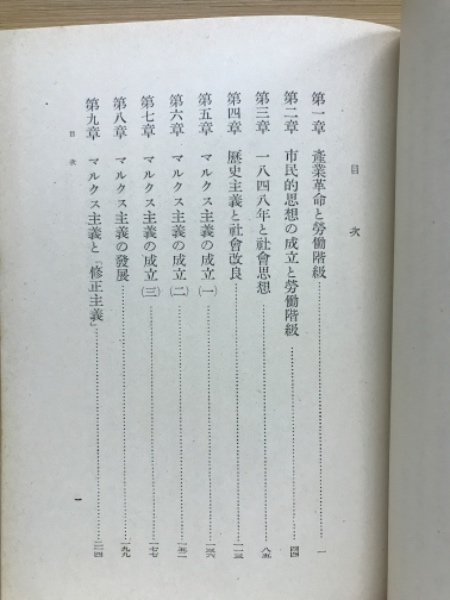 目次
第一章 產業革命と勞働階級 一
第二章 市民的思想の成立と勞働階級 四四
第三章 一八四八年と社會思想 八五
第四章 歷史主義と社會改良 一一三
第五章 マルクス主義の成立(一) 一三六
第六章 マルクス主義の成立(二)
第七章 マルクス主義の成立(三) 一七七
第八章 マルクス主義の發展 一九九
第九章 マルクス主義と「修正主義」 二二四
目次
一